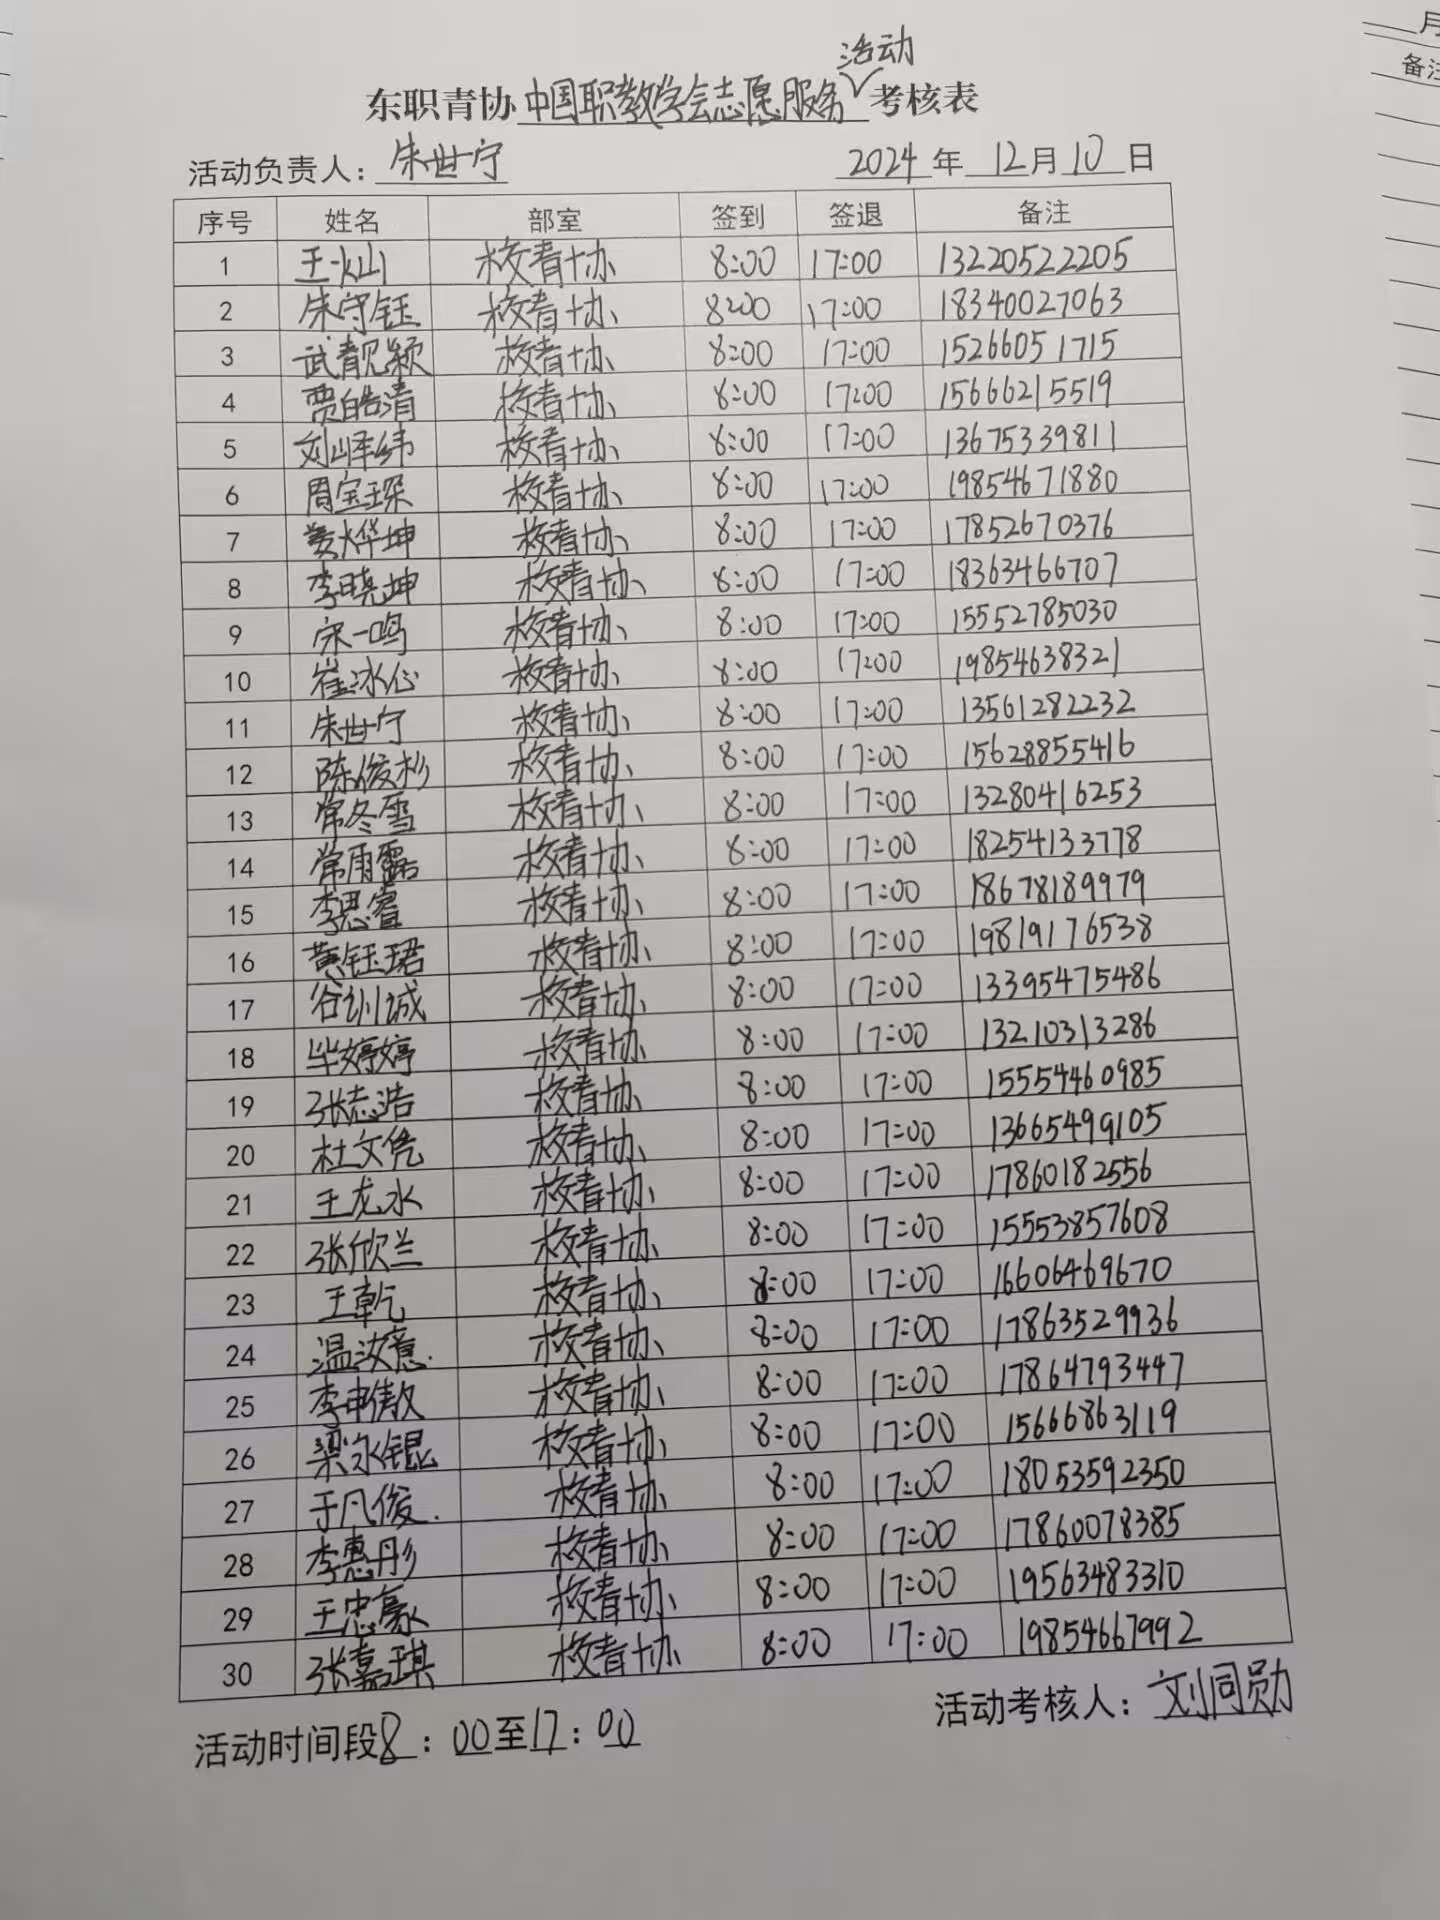 东职青协中国职教学会志愿服务活动考核表
活动负责人：朱世宁 2024年12月10日
序号 姓名 部室 签到 签退 备注
1 王 校青协 8:00 17:00 13220522205
2 朱守钰 校青协 8:00 17:00 18340027063
3 武靓颖 校青协 8:00 17:00 15266051715
4 贾皓清 校青协 8:00 17:00 15666215519
5 刘峄纬 校青协 8:00 17:00 13675339811
6 周宝琛 校青协 8:00 17:00 19854671880
7 姜烨坤 校青协 8:00 17:00 17852670376
8 李晓坤 校青协 8:00 17:00 18363466707
9 宋一鸣 校青协 8:00 17:00 15552785030
10 崔冰心 校青协 8:00 17:00 19854638321
11 朱世宁 校青协 8:00 17:00 13561282232
12 陈俊杉 校青协 8:00 17:00 15628855416
13 常冬雪 校青协 8:00 17:00 13280416253
14 常雨露 校青协 8:00 17:00 18254133778
15 李思睿 校青协 8:00 17:00 18678189979
16 黄钰珺 校青协 8:00 17:00 19819176538
17 谷训诚 校青协 8:00 17:00 13395475486
18 毕婷婷 校青协 8:00 17:00 13210313286
19 张志浩 校青协 8:00 17:00 15554460985
20 杜文凭 校青协 8:00 17:00 13665499105
21 王龙水 校青协 8:00 17:00 17860182556
22 张欣兰 校青协 8:00 17:00 15553857608
23 王乾 校青协 8:00 17:00 16606469670
24 温汝意 校青协 8:00 17:00 17863529936
25 李申傲 校青协 8:00 17:00 17864793447
26 梁冰锟 校青协 8:00 17:00 15666863119
27 于凡俊 校青协 8:00 17:00 18053592350
28 李惠彤 校青协 8:00 17:00 17860078385
29 王忠豪 校青协 8:00 17:00 19563483310
30 张嘉琪 校青协 8:00 17:00 19854667992
活动时间段8：00至17：00 活动考核人：刘同勋
月
备注